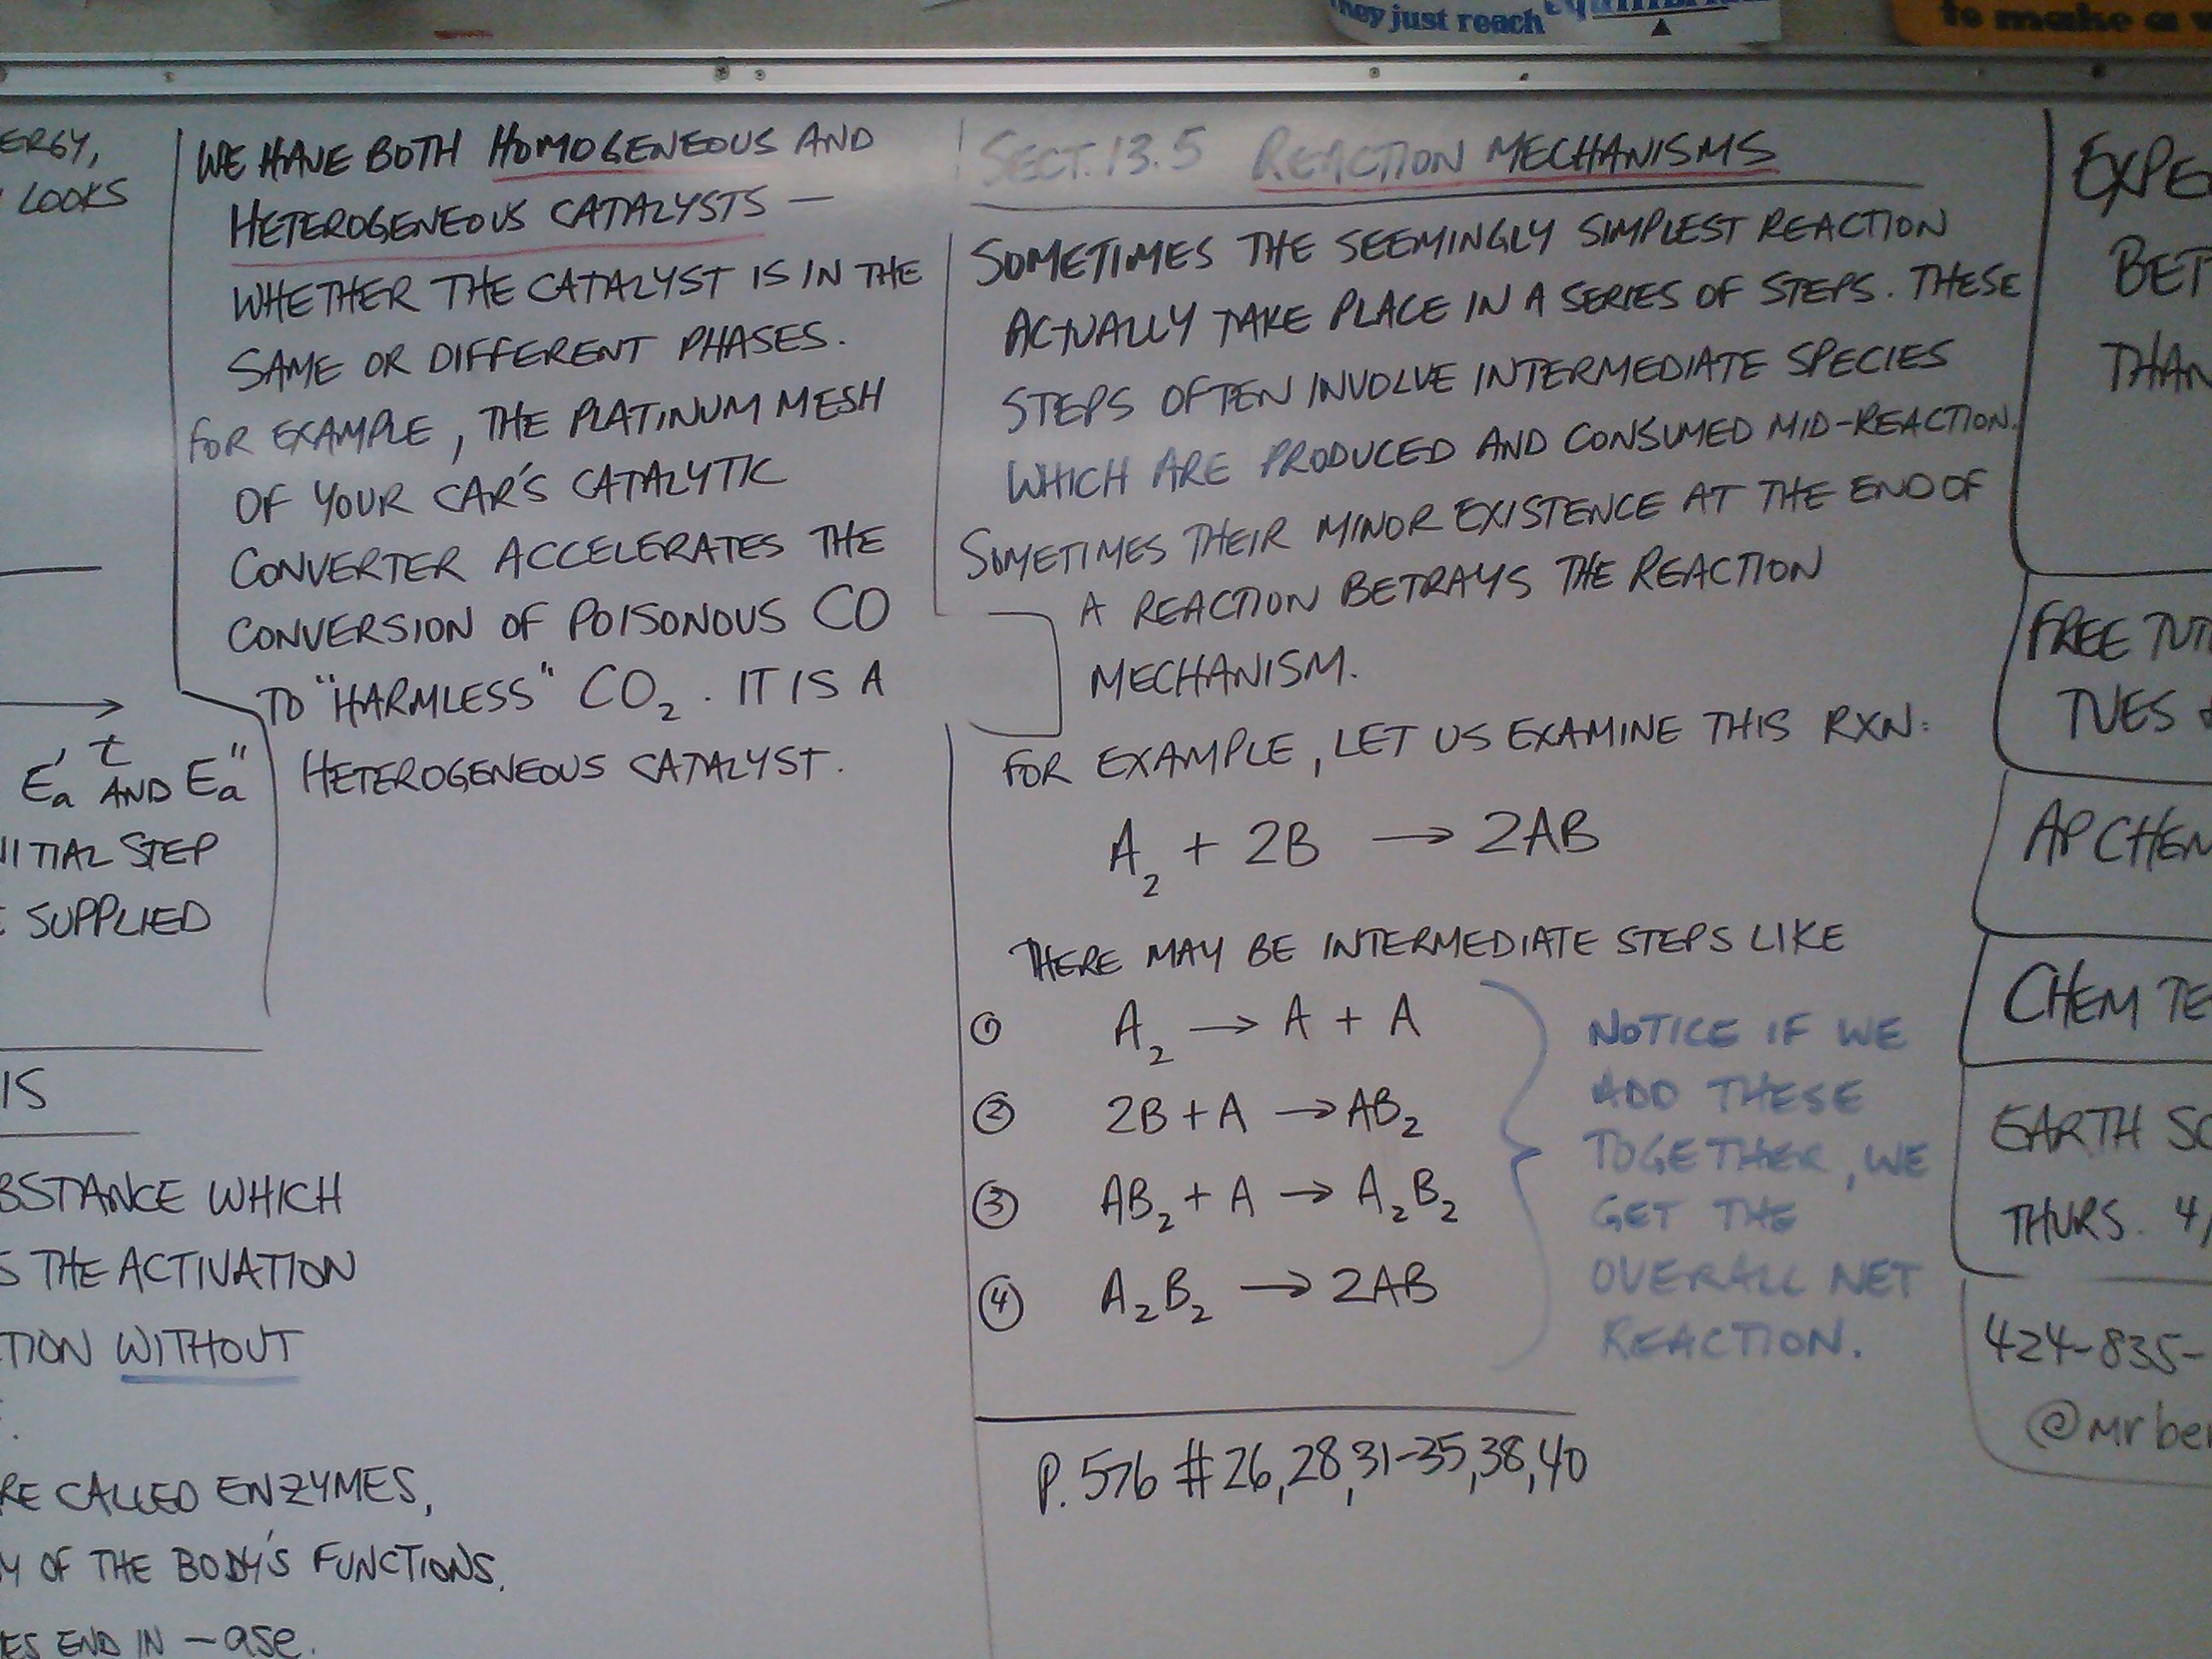 they just reach equilibrium
to make a
ERGY,
LOOKS
t
Ea' AND Ea"
INITIAL STEP
SUPPLIED
IS
BSTANCE WHICH
S THE ACTIVATION
TION WITHOUT
RE CALLED ENZYMES,
Y OF THE BODY'S FUNCTIONS.
ES END IN -ase.
WE HAVE BOTH HOMOGENEOUS AND
HETEROGENEOUS CATALYSTS —
WHETHER THE CATALYST IS IN THE
SAME OR DIFFERENT PHASES.
FOR EXAMPLE, THE PLATINUM MESH
OF YOUR CAR'S CATALYTIC
CONVERTER ACCELERATES THE
CONVERSION OF POISONOUS CO
TO "HARMLESS" CO₂. IT IS A
HETEROGENEOUS CATALYST.
SECT. 13.5 REACTION MECHANISMS
SOMETIMES THE SEEMINGLY SIMPLEST REACTION
ACTUALLY TAKE PLACE IN A SERIES OF STEPS. THESE
STEPS OFTEN INVOLVE INTERMEDIATE SPECIES
WHICH ARE PRODUCED AND CONSUMED MID-REACTION.
SOMETIMES THEIR MINOR EXISTENCE AT THE END OF
A REACTION BETRAYS THE REACTION
MECHANISM.
FOR EXAMPLE, LET US EXAMINE THIS RXN:
A₂ + 2B → 2AB
THERE MAY BE INTERMEDIATE STEPS LIKE
① A₂ → A + A
② 2B + A → AB₂
③ AB₂ + A → A₂B₂
④ A₂B₂ → 2AB
NOTICE IF WE
ADD THESE
TOGETHER, WE
GET THE
OVERALL NET
REACTION.
P. 576 # 26, 28, 31-35, 38, 40
EXPE
BET
THAN
FREE TUT
TUES
AP CHEM
CHEM TE
EARTH SC
THURS. 4/
424-835-
@mrber